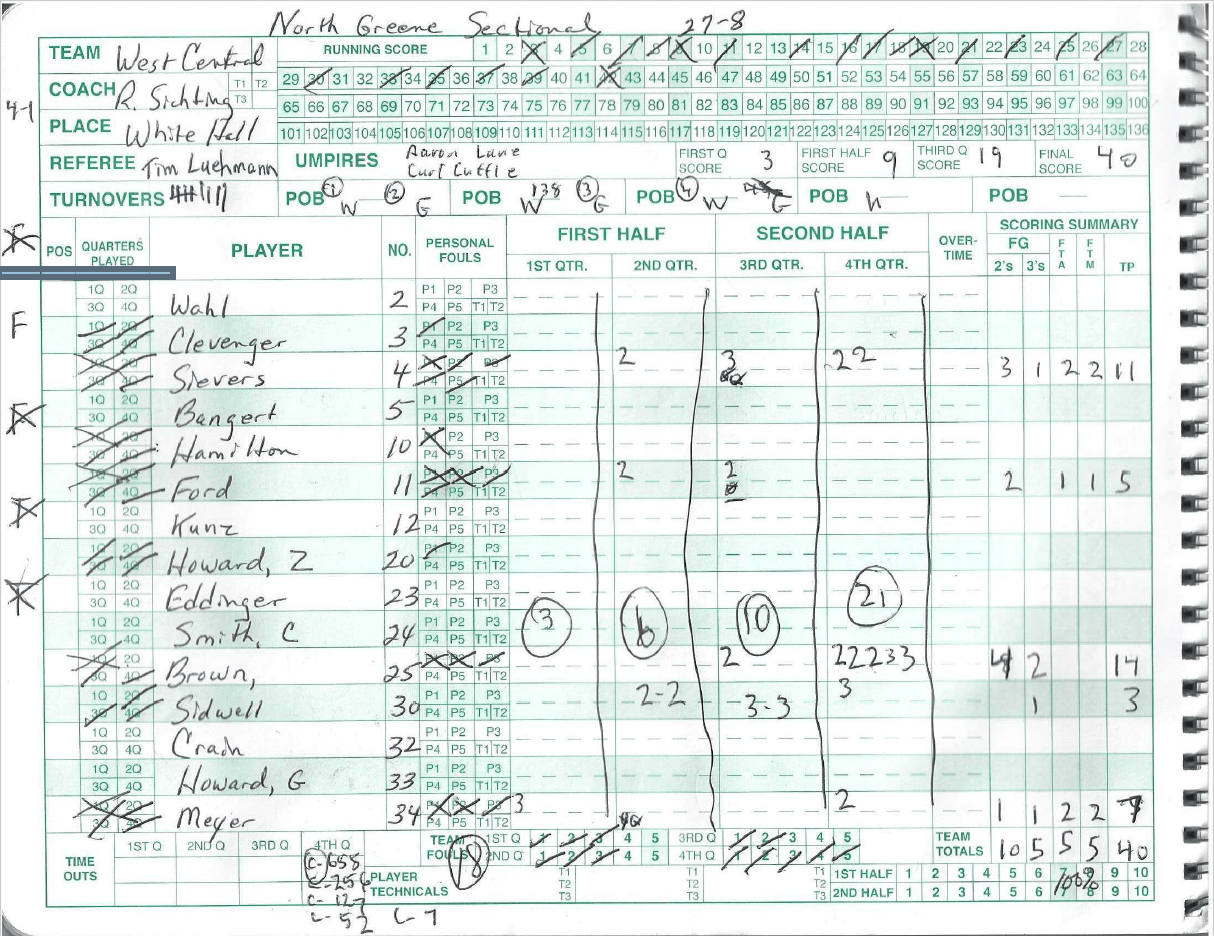 North Greene Sectional 27-8
TEAM West Central RUNNING SCORE 1 2 3 4 5 6 7 8 9 10 11 12 13 14 15 16 17 18 19 20 21 22 23 24 25 26 27 28
COACH R. Sichting T1 T2 T3 29 30 31 32 33 34 35 36 37 38 39 40 41 42 43 44 45 46 47 48 49 50 51 52 53 54 55 56 57 58 59 60 61 62 63 64
4-1 65 66 67 68 69 70 71 72 73 74 75 76 77 78 79 80 81 82 83 84 85 86 87 88 89 90 91 92 93 94 95 96 97 98 99 100
PLACE White Hall 101 102 103 104 105 106 107 108 109 110 111 112 113 114 115 116 117 118 119 120 121 122 123 124 125 126 127 128 129 130 131 132 133 134 135 136
REFEREE Tim Luehmann UMPIRES Aaron Lane Curt Cuttle FIRST Q SCORE 3 FIRST HALF SCORE 9 THIRD Q SCORE 19 FINAL SCORE 40
TURNOVERS POB 1 W 2 G POB W 138 3 G POB 4 W G POB POB
POS QUARTERS PLAYED PLAYER NO. PERSONAL FOULS FIRST HALF SECOND HALF OVER-TIME SCORING SUMMARY
1ST QTR. 2ND QTR. 3RD QTR. 4TH QTR. FG 2's 3's FTA FTM TP
1Q 2Q 3Q 4Q Wahl 2 P1 P2 P3 P4 P5 T1 T2
F 1Q 2Q 3Q 4Q Clevenger 3 P1 P2 P3 P4 P5 T1 T2
1Q 2Q 3Q 4Q Sievers 4 P1 P2 P3 P4 P5 T1 T2 2 3 22 3 1 2 2 11
1Q 2Q 3Q 4Q Bangert 5 P1 P2 P3 P4 P5 T1 T2
1Q 2Q 3Q 4Q Hamilton 10 P1 P2 P3 P4 P5 T1 T2
1Q 2Q 3Q 4Q Ford 11 P1 P2 P3 P4 P5 T1 T2 2 2 2 1 1 5
1Q 2Q 3Q 4Q Kunz 12 P1 P2 P3 P4 P5 T1 T2
1Q 2Q 3Q 4Q Howard, Z 20 P1 P2 P3 P4 P5 T1 T2
1Q 2Q 3Q 4Q Eddinger 23 P1 P2 P3 P4 P5 T1 T2
1Q 2Q 3Q 4Q Smith, C 24 P1 P2 P3 P4 P5 T1 T2 3 6 10 21
1Q 2Q 3Q 4Q Brown, 25 P1 P2 P3 P4 P5 T1 T2 2 22233 4 2 14
1Q 2Q 3Q 4Q Sidwell 30 P1 P2 P3 P4 P5 T1 T2 2-2 3-3 3 1 3
1Q 2Q 3Q 4Q Crain 32 P1 P2 P3 P4 P5 T1 T2
1Q 2Q 3Q 4Q Howard, G 33 P1 P2 P3 P4 P5 T1 T2
1Q 2Q 3Q 4Q Meyer 34 P1 P2 P3 P4 P5 T1 T2 3 2 1 1 2 2 7
TIME OUTS 1ST Q 2ND Q 3RD Q 4TH Q TEAM FOULS 18 1ST Q 1 2 3 4 5 3RD Q 1 2 3 4 5 TEAM TOTALS 10 5 5 5 40
2ND Q 1 2 3 4 5 4TH Q 1 2 3 4 5
C-658
C-256 PLAYER TECHNICALS T1 T2 T3 T1 T2 T3 T1 T2 T3 1ST HALF 1 2 3 4 5 6 7 8 9 10
C-127 2ND HALF 1 2 3 4 5 6 7 8 9 10 100%
C-52 C-7